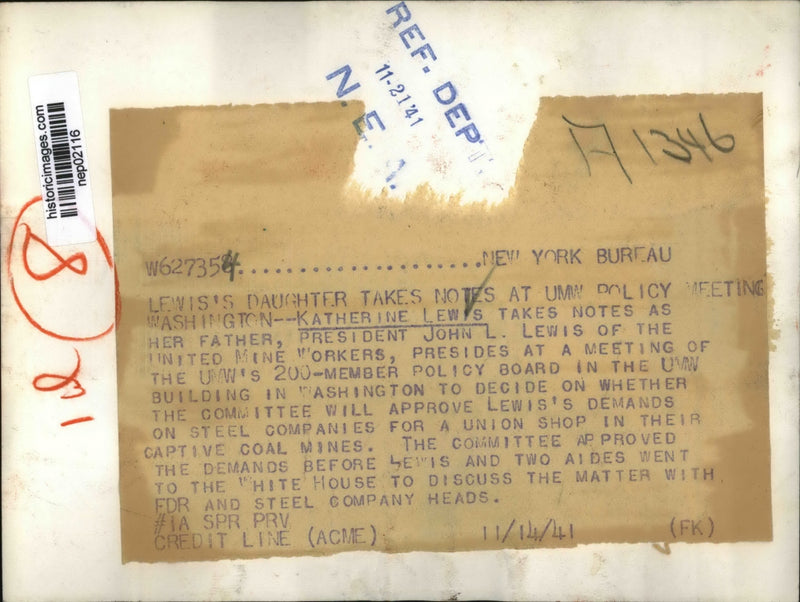 REF. DEPT.
11-21-41
N. E. A.
historicimages.com
nep02116
A 1346
8
12
W627354.....................NEW YORK BUREAU
LEWIS'S DAUGHTER TAKES NOTES AT UMW POLICY MEETING
WASHINGTON--KATHERINE LEWIS TAKES NOTES AS
HER FATHER, PRESIDENT JOHN L. LEWIS OF THE
UNITED MINE WORKERS, PRESIDES AT A MEETING OF
THE UMW'S 200-MEMBER POLICY BOARD IN THE UMW
BUILDING IN WASHINGTON TO DECIDE ON WHETHER
THE COMMITTEE WILL APPROVE LEWIS'S DEMANDS
ON STEEL COMPANIES FOR A UNION SHOP IN THEIR
CAPTIVE COAL MINES. THE COMMITTEE APPROVED
THE DEMANDS BEFORE LEWIS AND TWO AIDES WENT
TO THE WHITE HOUSE TO DISCUSS THE MATTER WITH
FDR AND STEEL COMPANY HEADS.
#1A SPR PRV
CREDIT LINE (ACME) 11/14/41 (FK)